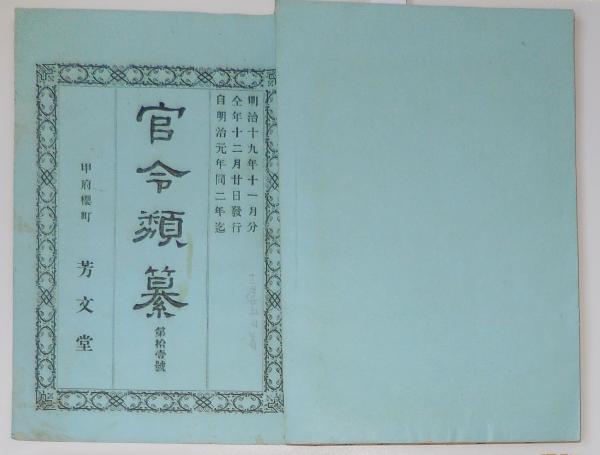 明治十九年十一月分
仝年十二月廿日發行
自明治元年同二年迄
官令類纂
第拾壹號
甲府櫻町
芳文堂